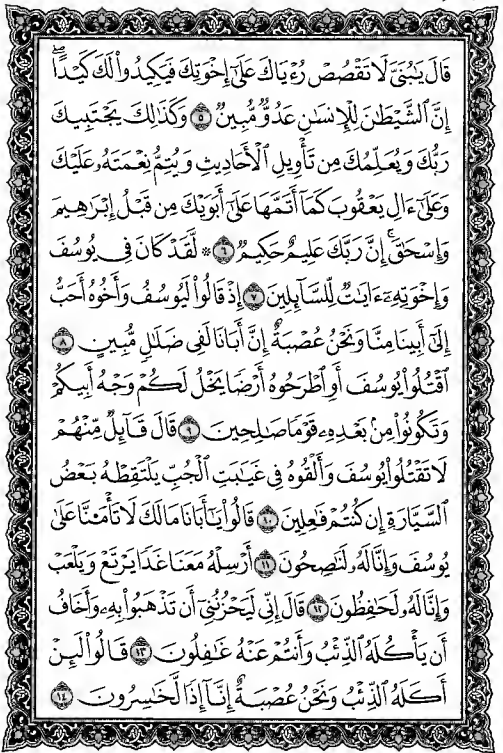 قَالَ يَٰبُنَيَّ لَا تَقْصُصْ رُءْيَاكَ عَلَىٰٓ إِخْوَتِكَ فَيَكِيدُوا۟ لَكَ كَيْدًا ۖ
إِنَّ ٱلشَّيْطَٰنَ لِلْإِنسَٰنِ عَدُوٌّ مُّبِينٌ ٥ وَكَذَٰلِكَ يَجْتَبِيكَ
رَبُّكَ وَيُعَلِّمُكَ مِن تَأْوِيلِ ٱلْأَحَادِيثِ وَيُتِمُّ نِعْمَتَهُۥ عَلَيْكَ
وَعَلَىٰٓ ءَالِ يَعْقُوبَ كَمَآ أَتَمَّهَا عَلَىٰٓ أَبَوَيْكَ مِن قَبْلُ إِبْرَٰهِيمَ
وَإِسْحَٰقَ ۚ إِنَّ رَبَّكَ عَلِيمٌ حَكِيمٌ ٦ ۞ لَّقَدْ كَانَ فِى يُوسُفَ
وَإِخْوَتِهِۦٓ ءَايَٰتٌ لِّلسَّآئِلِينَ ٧ إِذْ قَالُوا۟ لَيُوسُفُ وَأَخُوهُ أَحَبُّ
إِلَىٰٓ أَبِينَا مِنَّا وَنَحْنُ عُصْبَةٌ إِنَّ أَبَانَا لَفِى ضَلَٰلٍ مُّبِينٍ ٨
ٱقْتُلُوا۟ يُوسُفَ أَوِ ٱطْرَحُوهُ أَرْضًا يَخْلُ لَكُمْ وَجْهُ أَبِيكُمْ
وَتَكُونُوا۟ مِنۢ بَعْدِهِۦ قَوْمًا صَٰلِحِينَ ٩ قَالَ قَآئِلٌ مِّنْهُمْ
لَا تَقْتُلُوا۟ يُوسُفَ وَأَلْقُوهُ فِى غَيَٰبَتِ ٱلْجُبِّ يَلْتَقِطْهُ بَعْضُ
ٱلسَّيَّارَةِ إِن كُنتُمْ فَٰعِلِينَ ١٠ قَالُوا۟ يَٰٓأَبَانَا مَالَكَ لَا تَأْمَ۫نَّا عَلَىٰ
يُوسُفَ وَإِنَّا لَهُۥ لَنَٰصِحُونَ ١١ أَرْسِلْهُ مَعَنَا غَدًا يَرْتَعْ وَيَلْعَبْ
وَإِنَّا لَهُۥ لَحَٰفِظُونَ ١٢ قَالَ إِنِّى لَيَحْزُنُنِىٓ أَن تَذْهَبُوا۟ بِهِۦ وَأَخَافُ
أَن يَأْكُلَهُ ٱلذِّئْبُ وَأَنتُمْ عَنْهُ غَٰفِلُونَ ١٣ قَالُوا۟ لَئِنْ
أَكَلَهُ ٱلذِّئْبُ وَنَحْنُ عُصْبَةٌ إِنَّآ إِذًا لَّخَٰسِرُونَ ١٤